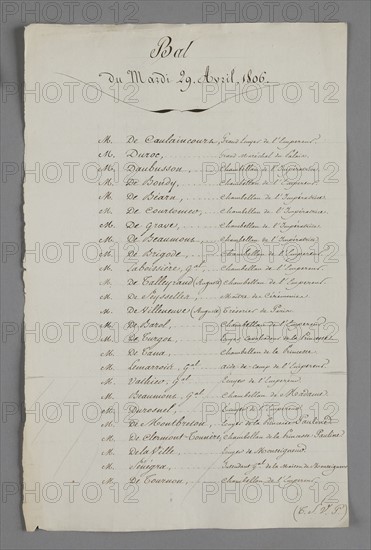 Bal
du Mardi 29. Avril. 1806.
M. De Caulaincourt, Grand Ecuyer de l'Empereur.
M. Duroc, Grand Maréchal du Palais.
M. Daubusson, Chambellan de l'Impératrice
M. De Bondy, Chambellan de l'Empereur.
M. De Béarn, Chambellan de l'Impératrice
M. De Courtomer, Chambellan de l'Impératrice
M. De Grave, Chambellan de l'Impératrice
M. De Beaumont, Chambellan de l'Impératrice
M. De Brigode, Chambellan de l'Empereur
M. Laboissière, Gal. Chambellan de l'Empereur.
M. De Talleyrand (Auguste) Chambellan de l'Empereur.
M. De Seyssellez, Maître des Cérémonies
M. De Villeneuve (Auguste) Trésorier de
M. De Barol, Chambellan de l'
M. De Turgot, Ecuyer de la Princesse
M. De Chambellan de la Princesse
M. Lemarrois, Gal. Aide-de-camp de l'Empereur.
M. Vathier, Gal. Ecuyer de l'Empereur
M. Beaumont, Gal. Chambellan de Madame
M. Durosnel, Ecuyer de l'Empereur
M. De Montbreton, Ecuyer de la Princesse Pauline
M. De Clermont Tonnerre, Chambellan de la Princesse Pauline
M. De la Ville, Ecuyer de Monseigneur
M. Sénégra, Intendant Gal. de la Maison de Monseigneur
M. De Tournon, Chambellan de l'Empereur
(T. S. V. P.)
PHOTO 12